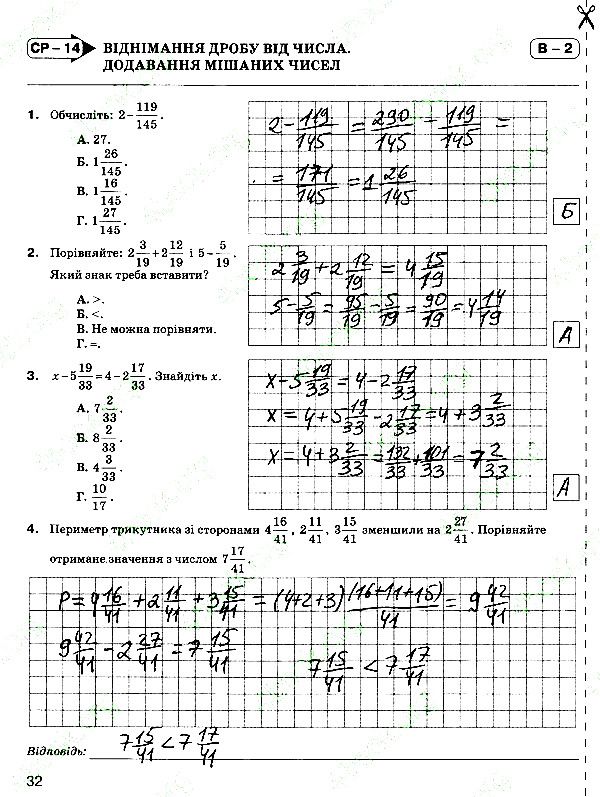 СР – 14 ВІДНІМАННЯ ДРОБУ ВІД ЧИСЛА. В – 2
ДОДАВАННЯ МІШАНИХ ЧИСЕЛ
1. Обчисліть: 2 – 119/145.
А. 27.
Б. 1 26/145.
В. 1 16/145.
Г. 1 27/145.
2 – 119/145 = 290/145 – 119/145 =
= 171/145 = 1 26/145
Б
2. Порівняйте: 2 3/19 + 2 12/19 і 5 – 5/19.
Який знак треба вставити?
А. >.
Б. <.
В. Не можна порівняти.
Г. =.
2 3/19 + 2 12/19 = 4 15/19
5 – 5/19 = 95/19 – 5/19 = 90/19 = 4 14/19
А
3. x – 5 19/33 = 4 – 2 17/33. Знайдіть x.
А. 7 2/33.
Б. 8 2/33.
В. 4 3/33.
Г. 10/17.
x – 5 19/33 = 4 – 2 17/33
x = 4 + 5 19/33 – 2 17/33 = 4 + 3 2/33
x = 4 + 3 2/33 = 132/33 + 101/33 = 7 2/33
А
4. Периметр трикутника зі сторонами 4 16/41, 2 11/41, 3 15/41 зменшили на 2 27/41. Порівняйте
отримане значення з числом 7 17/41.
P = 4 16/41 + 2 11/41 + 3 15/41 = (4+2+3) (16+11+15)/41 = 9 42/41
9 42/41 – 2 27/41 = 7 15/41
7 15/41 < 7 17/41
Відповідь: 7 15/41 < 7 17/41
32